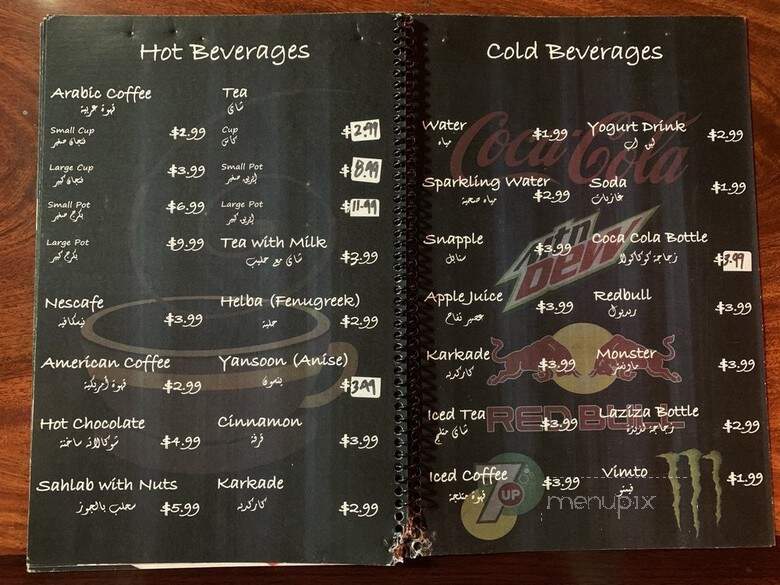 Hot Beverages
Arabic Coffee
قهوة عربية
Small Cup $2.99
فنجان صغير
Large Cup $3.99
فنجان كبير
Small Pot $6.99
بكرج صغير
Large Pot $9.99
بكرج كبير
Nescafe
نيسكافيه $3.99
American Coffee
قهوة أمريكية $2.99
Hot Chocolate
شوكالاته ساخنة $4.99
Sahlab with Nuts
سحلب بالجوز $5.99
Tea
شاي
Cup $2.99
كاس
Small Pot $8.99
إبريق صغير
Large Pot $11.99
إبريق كبير
Tea with Milk
شاي مع حليب $3.99
Helba (Fenugreek)
حلبة $2.99
Yansoon (Anise)
ينسون $3.99
Cinnamon
قرفة $3.99
Karkade
كاركديه $2.99
Cold Beverages
Water
مياه $1.99
Sparkling Water
مياه صحية $2.99
Snapple
سنابل $3.99
Apple Juice
عصير تفاح $3.99
Karkade
كاركديه $3.99
Iced Tea
شاي مثلج $3.99
Iced Coffee
قهوة مثلجة $3.99
Yogurt Drink $2.99
Soda
غازيات $1.99
Coca Cola Bottle
زجاجة كوكاكولا $3.99
Redbull
ريدبول $3.99
Monster
مونستر $3.99
Laziza Bottle
زجاجة لذيذة $2.99
Vimto
فيمتو $1.99
Coca-Cola
mtn DEW
RED BULL
7UP
menupix